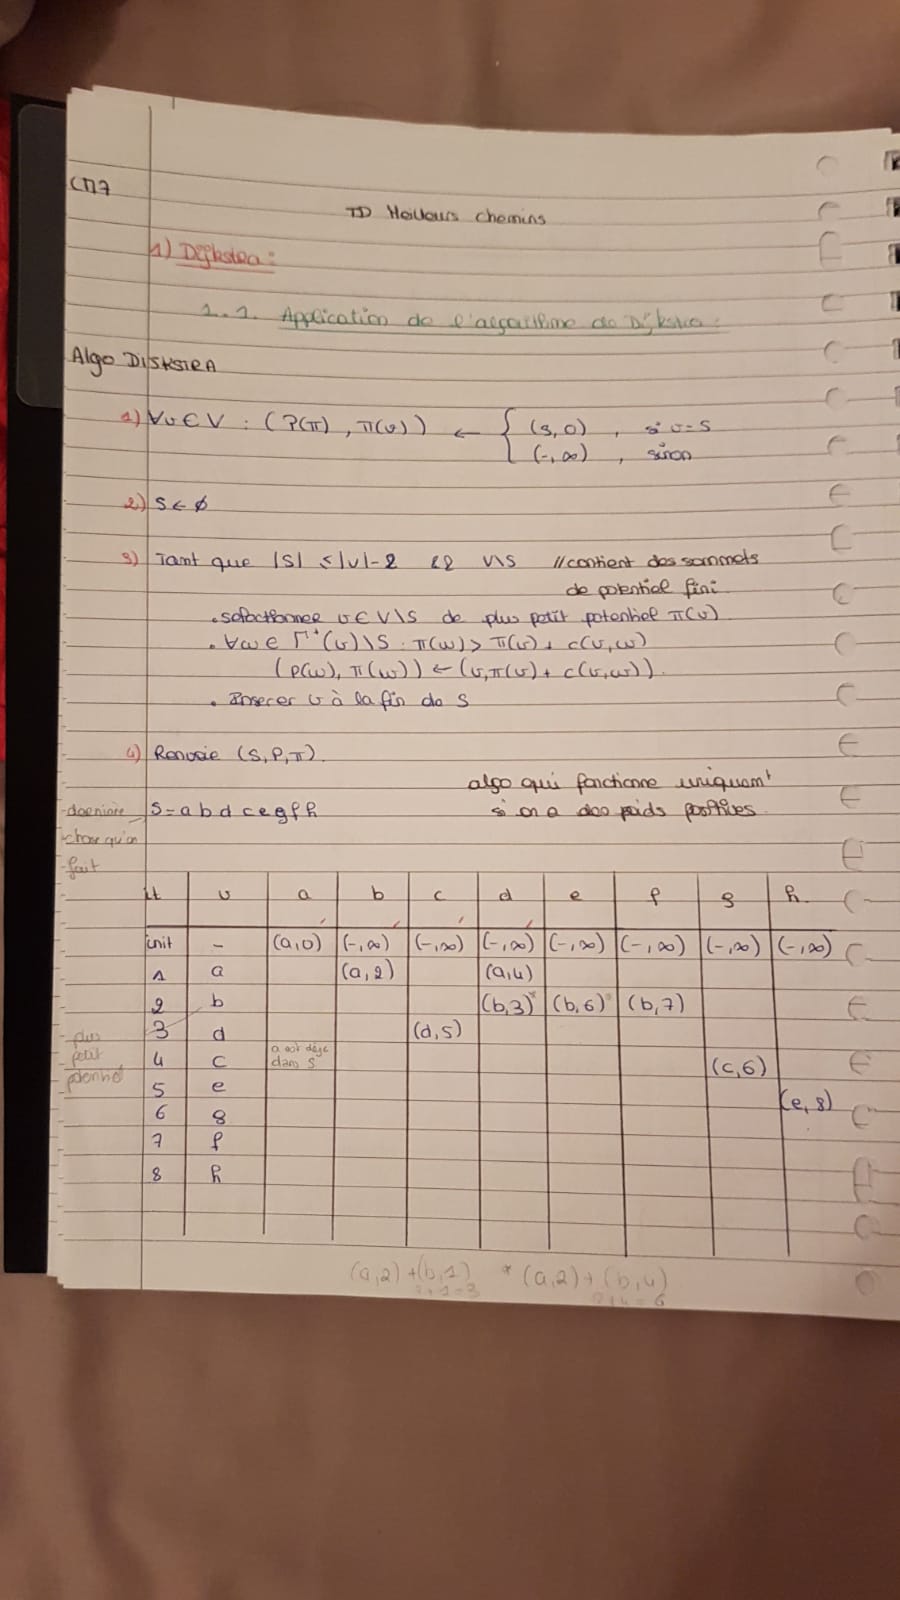 CM7
TD Meilleurs chemins
1) Dijkstra :
1.1. Application de l'algorithme de Dijkstra :
Algo DIJKSTRA
1) ∀v ∈ V : (P(π), π(v)) ← { (s, 0) , si v = s
(-, ∞) , sinon
2) S ← ∅
3) Tant que |S| ≤ |V|-2 && V\S // contient des sommets
de potentiel fini
. selectionner v ∈ V\S de plus petit potentiel π(v)
. ∀w ∈ Γ⁺(v)\S : π(w) > π(v) + c(v,w)
(P(w), π(w)) ← (v, π(v) + c(v,w)).
. Inserer v à la fin de S
4) Renvoie (S, P, π).
algo qui fonctionne uniquem^t
si on a des poids positives.
dernière chose qu'on fait
S = a b d c e g f h
it v a b c d e f g h
init - (a,0) (-,∞) (-,∞) (-,∞) (-,∞) (-,∞) (-,∞) (-,∞)
1 a (a,2) (a,4)
2 b (b,3)* (b,6)* (b,7)
3 d (d,5)
plus petit potentiel
4 c a est déjà dans S (c,6)
5 e (e,8)
6 g
7 f
8 h
(a,2) + (b,1) * (a,2) + (b,4)
2+1=3 2+4=6